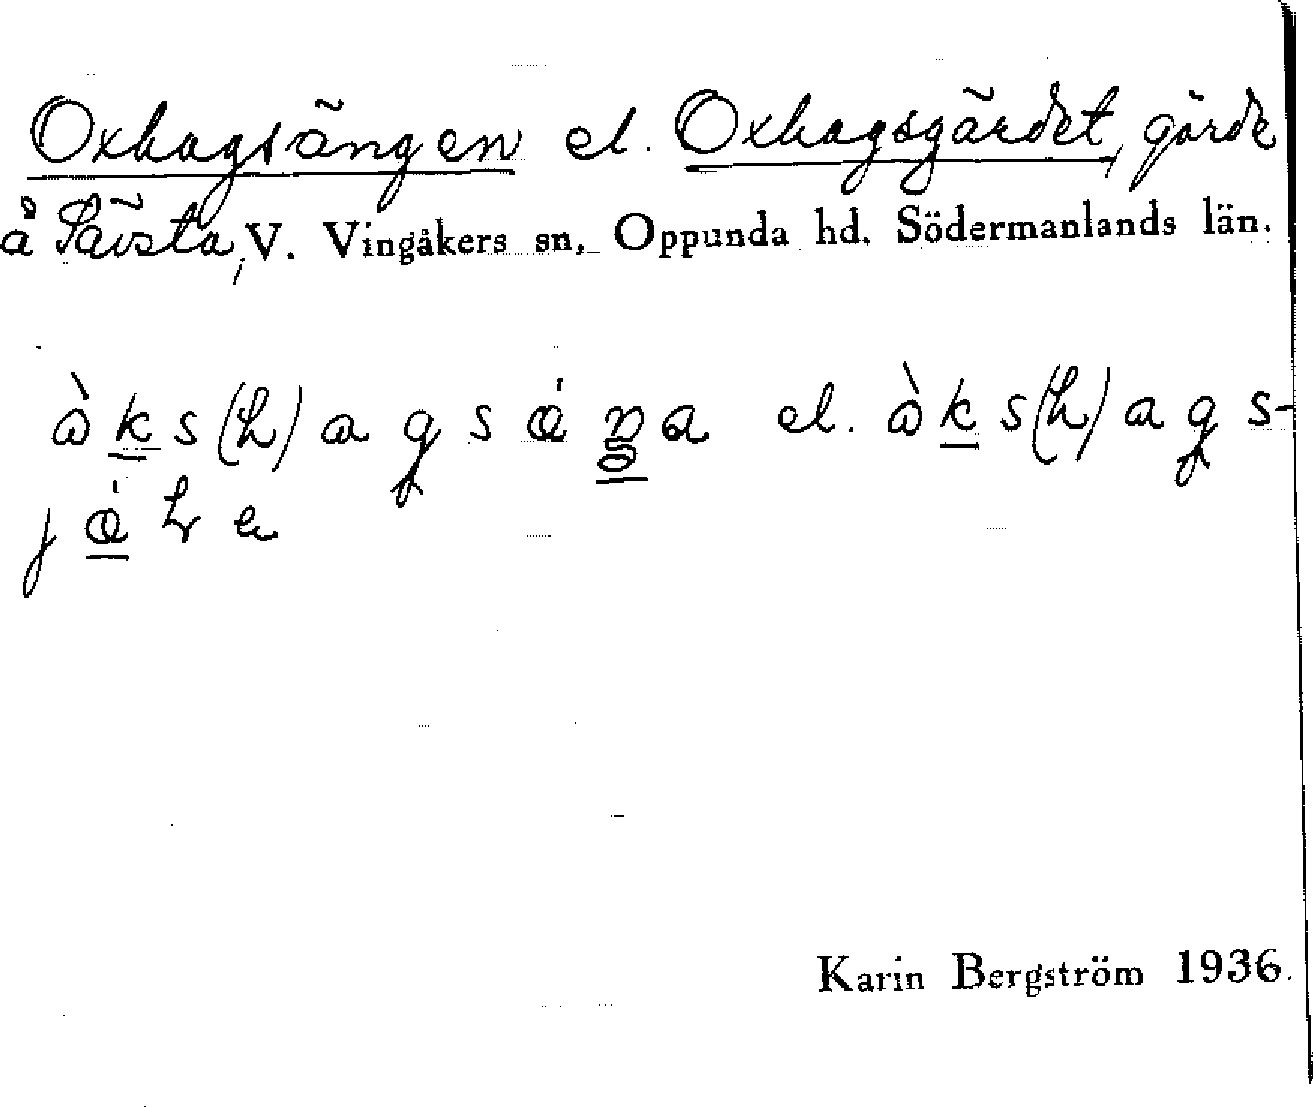 Oxhagsängen el. Oxhagsgärdet, gärde
å Sävsta, V. Vingåkers sn, Oppunda hd. Södermanlands län.
àks(h)agsǽŋa el. àks(h)ags-
jǽɽe
Karin Bergström 1936.